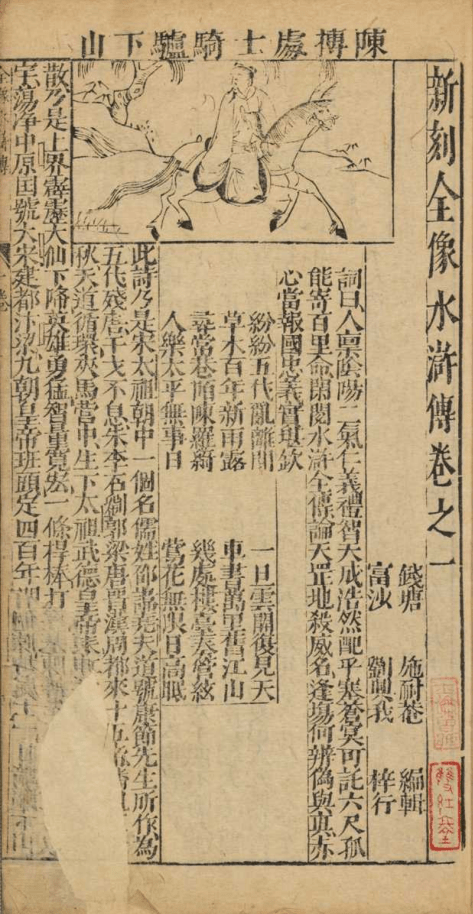 陳摶處士騎驢下山
新刻全像水滸傳卷之一
錢塘 施耐菴 編輯
富沙 劉興我 梓行
詞曰人稟陰陽二氣仁義禮智天成浩然配乎塞蒼冥可託六尺孤
能寄百里命閑閱水滸全傳論天罡地殺威名逢場何辨偽與真赤
心當報國忠義實堪欽
紛紛五代亂離間 一旦雲開復見天
草木百年新雨露 車書萬里舊江山
尋常巷陌陳羅綺 幾處樓臺奏管絃
人樂太平無事日 鶯花無限日高眠
此詩乃是宋太祖朝中一個名儒姓邵諱堯夫道號康節先生所作為
五代殘唐干戈不息朱李石劉郭梁唐晉漢周都來十五帝
秋天道循環夾馬營中生下太祖武德皇帝
散乃是上界霹靂大仙下降英雄勇猛智量寬宏一條桿棒打
蕩淨中原国號大宋建都汴梁九朝皇帝班頭定四百年
雙紅堂